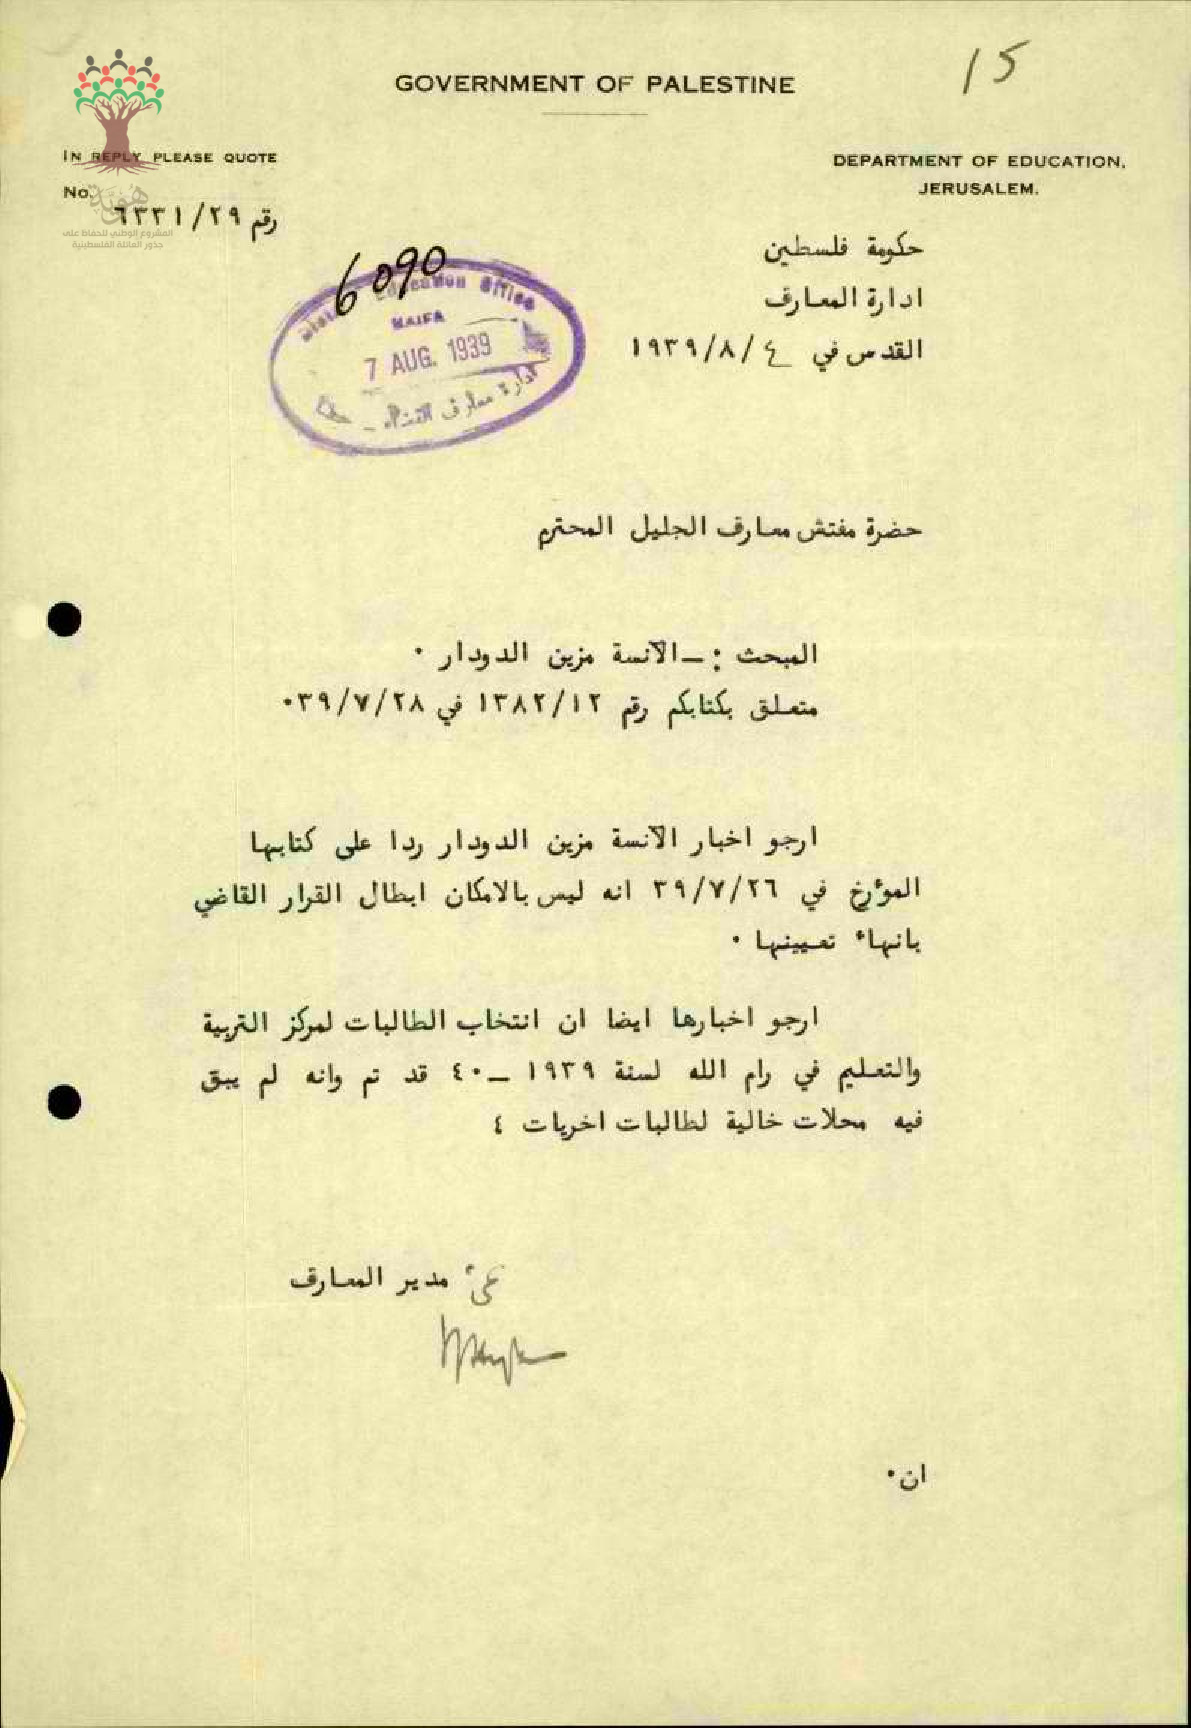 15
GOVERNMENT OF PALESTINE
IN REPLY PLEASE QUOTE
No.
رقم ٦٣٣١/٢٩
هُوِيَّة
المشروع الوطني للحفاظ على
جذور العائلة الفلسطينية
DEPARTMENT OF EDUCATION,
JERUSALEM.
حكومة فلسطين
ادارة المعارف
القدس في ٤/٨/١٩٣٩
6090
Education Office
HAIFA
7 AUG. 1939
ادارة معارف القضاء -
حضرة مفتش معارف الجليل المحترم
المبحث :- الآنسة مزين الدودار .
متعلق بكتابكم رقم ١٣٨٢/١٢ في ٣٩/٧/٢٨.
ارجو اخبار الآنسة مزين الدودار ردا على كتابها
المؤرخ في ٣٩/٧/٢٦ انه ليس بالامكان ابطال القرار القاضي
بانهاء تعيينها .
ارجو اخبارها ايضا ان انتخاب الطالبات لمركز التربية
والتعليم في رام الله لسنة ١٩٣٩ - ٤٠ قد تم وانه لم يبق
فيه محلات خالية لطالبات اخريات ٤
مدير المعارف
ان.